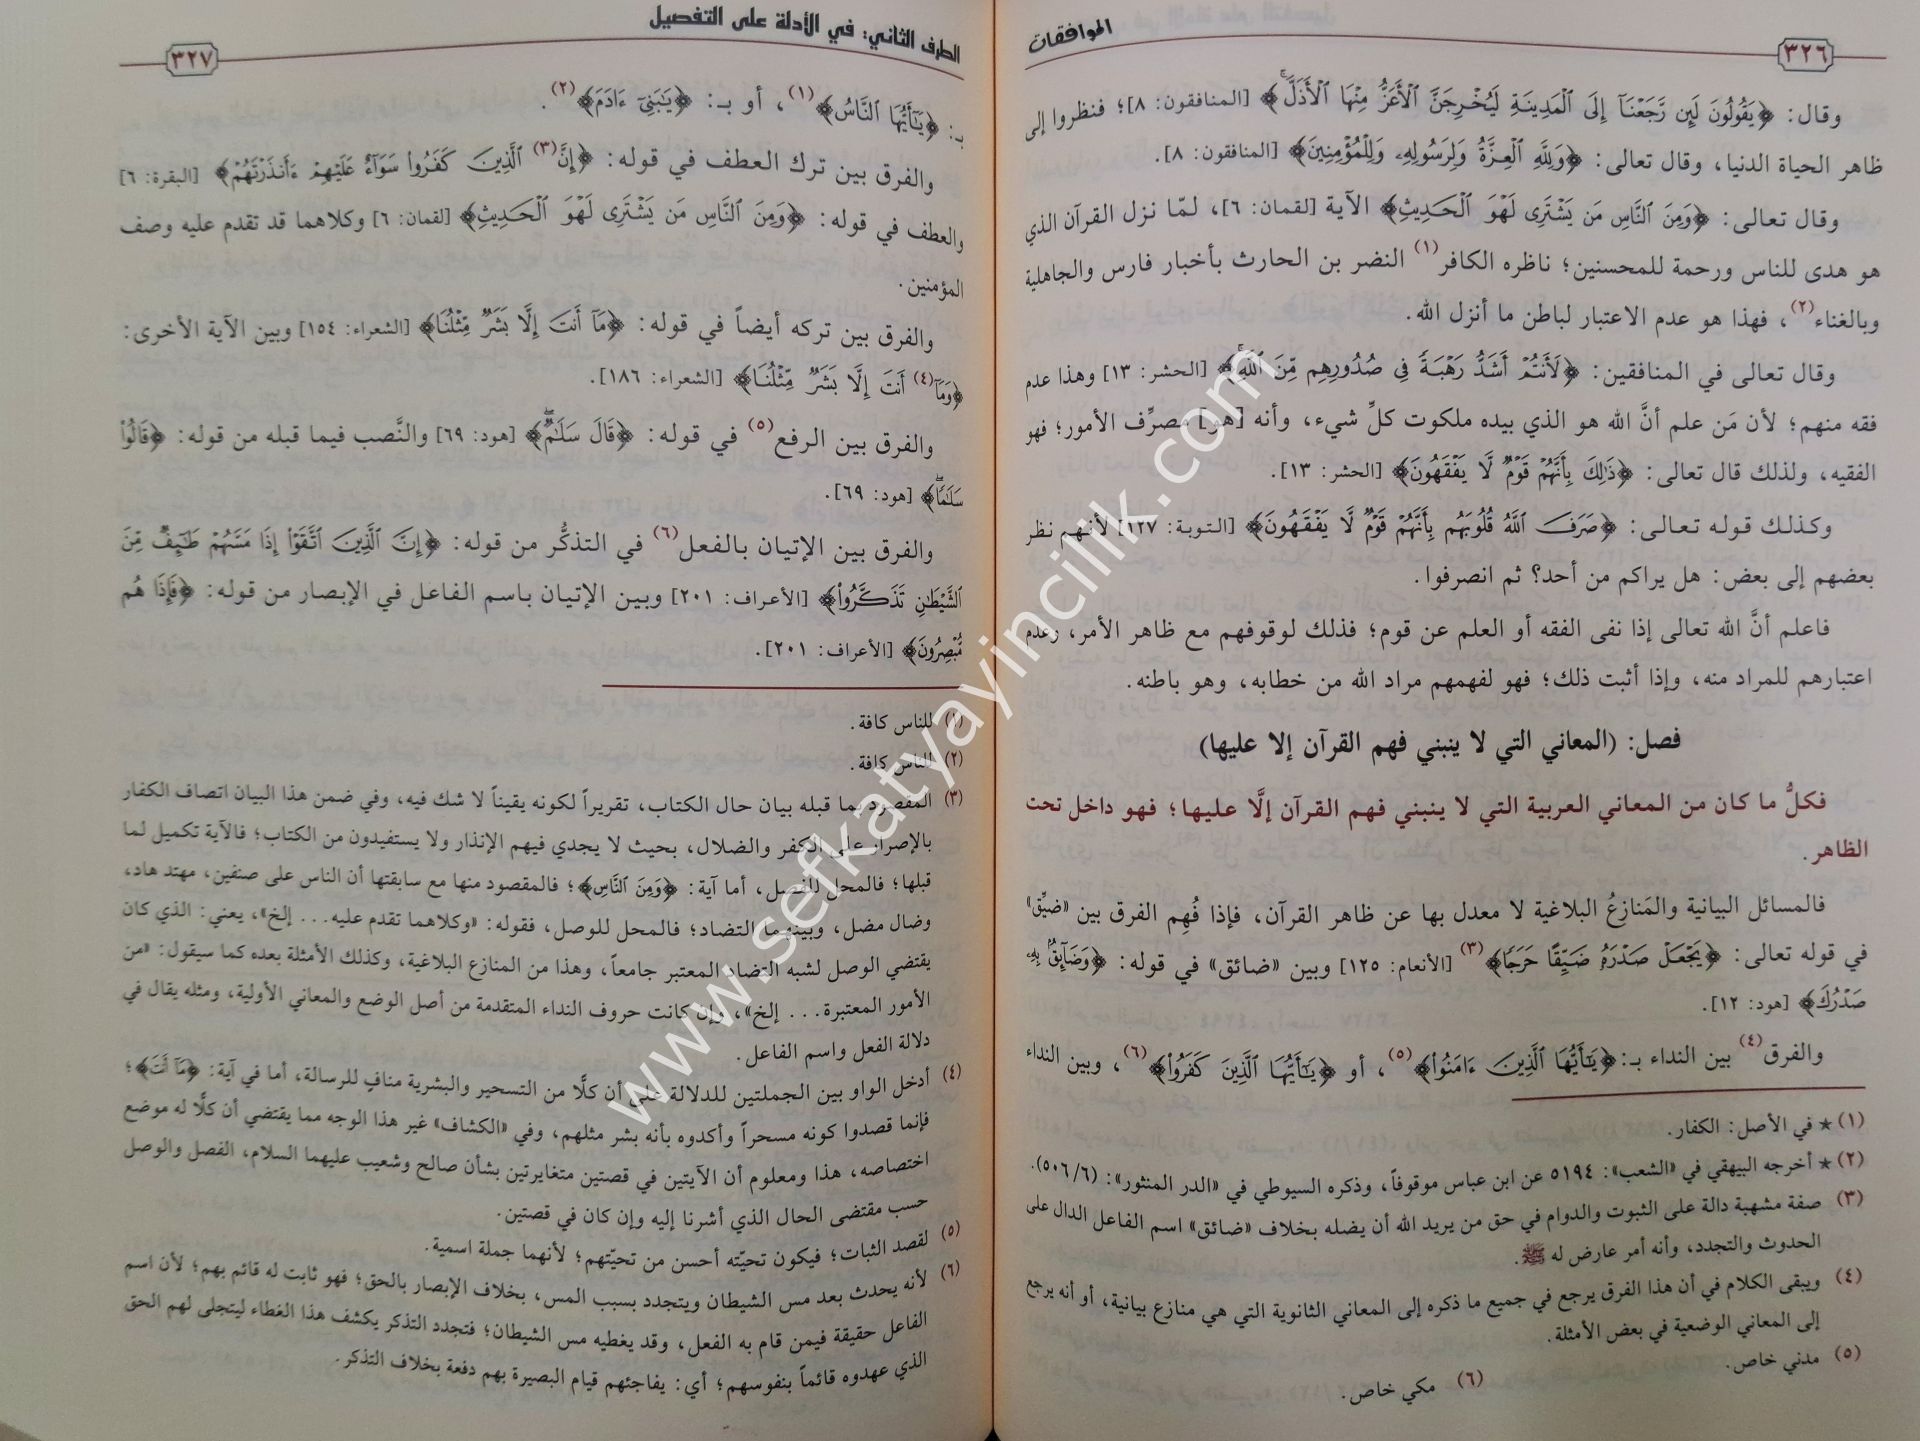 ٣٢٦
الموافقات
وقال: ﴿يَقُولُونَ لَئِن رَّجَعْنَآ إِلَى ٱلْمَدِينَةِ لَيُخْرِجَنَّ ٱلْأَعَزُّ مِنْهَا ٱلْأَذَلَّ﴾ [المنافقون: ٨]؛ فنظروا إلى
ظاهر الحياة الدنيا، وقال تعالى: ﴿وَلِلَّهِ ٱلْعِزَّةُ وَلِرَسُولِهِۦ وَلِلْمُؤْمِنِينَ﴾ [المنافقون: ٨].
وقال تعالى: ﴿وَمِنَ ٱلنَّاسِ مَن يَشْتَرِى لَهْوَ ٱلْحَدِيثِ﴾ الآية [لقمان: ٦]، لمّا نزل القرآن الذي
هو هدى للناس ورحمة للمحسنين؛ ناظره الكافر(١) النضر بن الحارث بأخبار فارس والجاهلية
وبالغناء(٢)، فهذا هو عدم الاعتبار لباطن ما أنزل الله.
وقال تعالى في المنافقين: ﴿لَأَنتُمْ أَشَدُّ رَهْبَةً فِى صُدُورِهِم مِّنَ ٱللَّهِ﴾ [الحشر: ١٣] وهذا عدم
فقه منهم؛ لأن مَن علم أنَّ الله هو الذي بيده ملكوت كلِّ شيء، وأنه [هو] مصرِّف الأمور؛ فهو
الفقيه، ولذلك قال تعالى: ﴿ذَٰلِكَ بِأَنَّهُمْ قَوْمٌ لَّا يَفْقَهُونَ﴾ [الحشر: ١٣].
وكذلك قوله تعالى: ﴿صَرَفَ ٱللَّهُ قُلُوبَهُم بِأَنَّهُمْ قَوْمٌ لَّا يَفْقَهُونَ﴾ [التوبة: ١٢٧] لأنهم نظر
بعضهم إلى بعض: هل يراكم من أحد؟ ثم انصرفوا.
فاعلم أنَّ الله تعالى إذا نفى الفقه أو العلم عن قوم؛ فذلك لوقوفهم مع ظاهر الأمر، وعدم
اعتبارهم للمراد منه، وإذا أثبت ذلك؛ فهو لفهمهم مراد الله من خطابه، وهو باطنه.
فصل: (المعاني التي لا ينبني فهم القرآن إلا عليها)
فكلُّ ما كان من المعاني العربية التي لا ينبني فهم القرآن إلَّا عليها؛ فهو داخل تحت
الظاهر.
فالمسائل البيانية والمَنازِعُ البلاغية لا معدل بها عن ظاهر القرآن، فإذا فُهِم الفرق بين «ضيِّق»
في قوله تعالى: ﴿يَجْعَلْ صَدْرَهُۥ ضَيِّقًا حَرَجًا﴾(٣) [الأنعام: ١٢٥] وبين «ضائق» في قوله: ﴿وَضَآئِقٌۢ بِهِۦ
صَدْرُكَ﴾ [هود: ١٢].
والفرق(٤) بين النداء بـ: ﴿يَٰٓأَيُّهَا ٱلَّذِينَ ءَامَنُوا۟﴾(٥)، أو ﴿يَٰٓأَيُّهَا ٱلَّذِينَ كَفَرُوا۟﴾(٦)، وبين النداء
(١) ★ في الأصل: الكفار.
(٢) ★ أخرجه البيهقي في «الشعب»: ٥١٩٤ عن ابن عباس موقوفاً، وذكره السيوطي في «الدر المنثور»: (٥٠٦/٦).
(٣) صفة مشبهة دالة على الثبوت والدوام في حق من يريد الله أن يضله بخلاف «ضائق» اسم الفاعل الدال على
الحدوث والتجدد، وأنه أمر عارض له ﷺ.
(٤) ويبقى الكلام في أن هذا الفرق يرجع في جميع ما ذكره إلى المعاني الثانوية التي هي منازع بيانية، أو أنه يرجع
إلى المعاني الوضعية في بعض الأمثلة.
(٥) مدني خاص. (٦) مكي خاص.
الطرف الثاني: في الأدلة على التفصيل
٣٢٧
بـ: ﴿يَٰٓأَيُّهَا ٱلنَّاسُ﴾(١)، أو بـ: ﴿يَٰبَنِىٓ ءَادَمَ﴾(٢).
والفرق بين ترك العطف في قوله: ﴿إِنَّ(٣) ٱلَّذِينَ كَفَرُوا۟ سَوَآءٌ عَلَيْهِمْ ءَأَنذَرْتَهُمْ﴾ [البقرة: ٦]
والعطف في قوله: ﴿وَمِنَ ٱلنَّاسِ مَن يَشْتَرِى لَهْوَ ٱلْحَدِيثِ﴾ [لقمان: ٦] وكلاهما قد تقدم عليه وصف
المؤمنين.
والفرق بين تركه أيضاً في قوله: ﴿مَآ أَنتَ إِلَّا بَشَرٌ مِّثْلُنَا﴾ [الشعراء: ١٥٤] وبين الآية الأخرى:
﴿وَمَآ(٤) أَنتَ إِلَّا بَشَرٌ مِّثْلُنَا﴾ [الشعراء: ١٨٦].
والفرق بين الرفع(٥) في قوله: ﴿قَالَ سَلَٰمٌ﴾ [هود: ٦٩] والنَّصب فيما قبله من قوله: ﴿قَالُوا۟
سَلَٰمًا﴾ [هود: ٦٩].
والفرق بين الإتيان بالفعل(٦) في التذكُّر من قوله: ﴿إِنَّ ٱلَّذِينَ ٱتَّقَوْا۟ إِذَا مَسَّهُمْ طَٰٓئِفٌ مِّنَ
ٱلشَّيْطَٰنِ تَذَكَّرُوا۟﴾ [الأعراف: ٢٠١] وبين الإتيان باسم الفاعل في الإبصار من قوله: ﴿فَإِذَا هُم
مُّبْصِرُونَ﴾ [الأعراف: ٢٠١].
(١) للناس كافة.
(٢) للناس كافة.
(٣) المقصود بما قبله بيان حال الكتاب، تقريراً لكونه يقيناً لا شك فيه، وفي ضمن هذا البيان اتصاف الكفار
بالإصرار على الكفر والضلال، بحيث لا يجدي فيهم الإنذار ولا يستفيدون من الكتاب؛ فالآية تكميل لما
قبلها؛ فالمحل للفصل، أما آية: ﴿وَمِنَ ٱلنَّاسِ﴾؛ فالمقصود منها مع سابقتها أن الناس على صنفين، مهتد هاد،
وضال مضل، وبينهما التضاد؛ فالمحل للوصل، فقوله: «وكلاهما تقدم عليه... إلخ»، يعني: الذي كان
يقتضي الوصل لشبه التضاد المعتبر جامعاً، وهذا من المنازع البلاغية، وكذلك الأمثلة بعده كما سيقول: «من
الأمور المعتبرة... إلخ»، وإن كانت حروف النداء المتقدمة من أصل الوضع والمعاني الأولية، ومثله يقال في
دلالة الفعل واسم الفاعل.
(٤) أدخل الواو بين الجملتين للدلالة على أن كلًّا من التسحير والبشرية منافٍ للرسالة، أما في آية: ﴿مَآ أَنتَ﴾؛
فإنما قصدوا كونه مسحراً وأكدوه بأنه بشر مثلهم، وفي «الكشاف» غير هذا الوجه مما يقتضي أن كلًّا له موضع
اختصاصه، هذا ومعلوم أن الآيتين في قصتين متغايرتين بشأن صالح وشعيب عليهما السلام، الفصل والوصل
حسب مقتضى الحال الذي أشرنا إليه وإن كان في قصتين.
(٥) لقصد الثبات؛ فيكون تحيّته أحسن من تحيّتهم؛ لأنهما جملة اسمية.
(٦) لأنه يحدث بعد مس الشيطان ويتجدد بسبب المس، بخلاف الإبصار بالحق؛ فهو ثابت له قائم بهم؛ لأن اسم
الفاعل حقيقة فيمن قام به الفعل، وقد يغطيه مس الشيطان؛ فتجدد التذكر يكشف هذا الغطاء ليتجلى لهم الحق
الذي عهدوه قائماً بنفوسهم؛ أي: يفاجئهم قيام البصيرة بهم دفعة بخلاف التذكر.
www.sefkatyayincilik.com